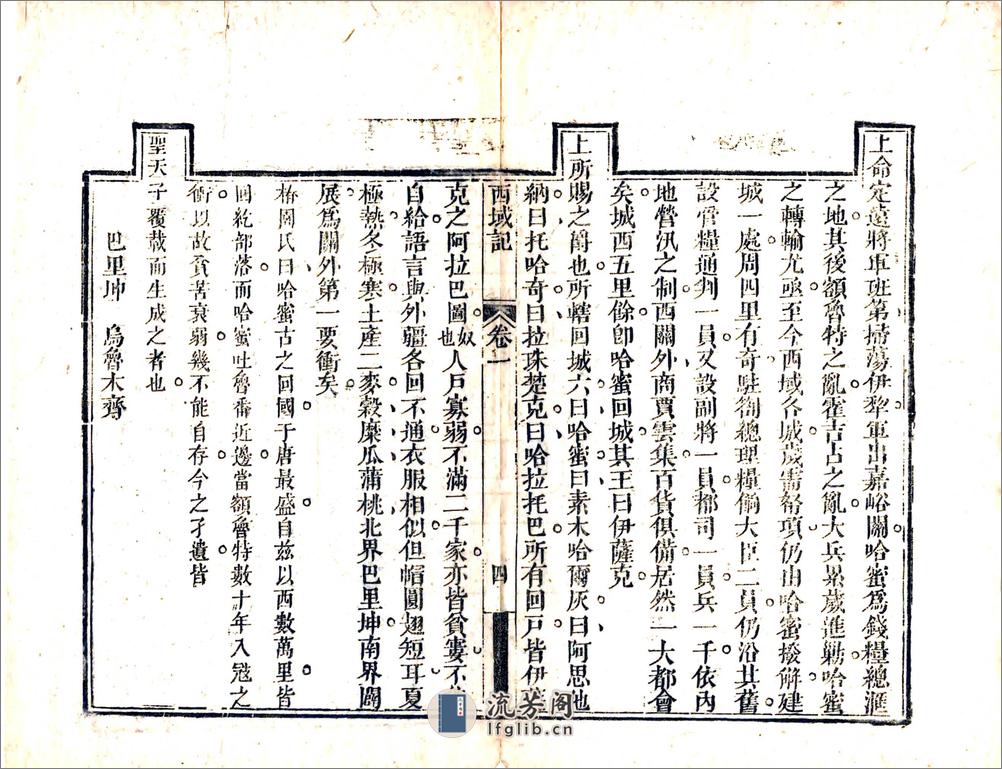 上命定遠將軍班第掃蕩伊犂軍出嘉峪關哈蜜爲錢糧總滙
之地其後額魯特之亂霍吉占之亂大兵累歲進勦哈蜜
之轉輸尤亟至今西域各城歲需帑項仍由哈蜜撥解建
城一處周四里有奇駐劄總理糧餉大臣二員仍沿其舊
設管糧通判一員又設副將一員都司一員兵一千依內
地營汛之制西關外商賈雲集百貨俱備居然一大都會
矣城西五里餘卽哈蜜回城其王曰伊薩克
上所賜之爵也所轄回城六曰哈蜜曰素木哈爾灰曰阿思
納曰托哈奇曰拉珠楚克曰哈拉托巴所有回戸皆伊薩
西域記 卷一 四
克之阿拉巴圖奴也人戸寡弱不滿二千家亦皆貧寠不
自給語言與外疆各回不通衣服相似但帽圓翅短耳夏
極熱冬極寒土產二麥穀糜瓜蒲桃北界巴里坤南界闢
展爲關外第一要衝矣
椿園氏曰哈蜜古之回國于唐最盛自兹以西數萬里皆
回紇部落而哈蜜吐魯番近邊當額魯特數十年入寇之
衝以故貧苦衰弱幾不能自存今之孑遺皆
聖天子覆載而生成之者也
巴里坤 烏魯木齊
流芳阁
lfglib.cn